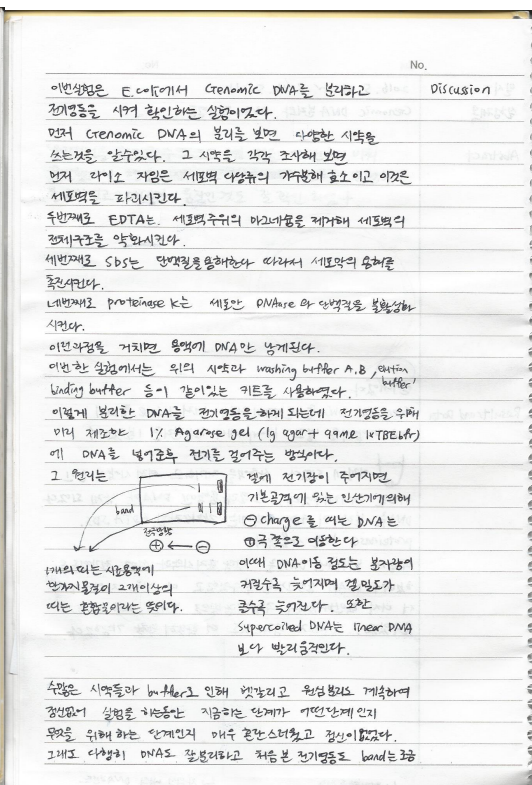 No.
Discussion
이번실험은 E.coli에서 Genomic DNA를 분리하고
전기영동을 시켜 확인하는 실험이었다.
먼저 Genomic DNA의 분리를 보면 다양한 시약을
쓰는것을 알수있다. 그 시약을 각각 조사해 보면
먼저 라이소 자임은 세포벽 다당류의 가수분해 효소이고 이것은
세포벽을 파괴시킨다.
두번째로 EDTA는. 세포벽주위의 마그네슘을 제거해 세포벽의
전체구조를 약화시킨다.
세번째로 SDS는 단백질을용해한다 따라서 세포막의 용해를
촉진시킨다.
네번째로 proteinase K는 세포안 DNAase 와 단백질을 불활성화
시킨다.
이런과정을 거치면 용액에 DNA만 남게된다.
이번 한 실험에서는 위의 시약과 washing buffer A.B, elution buffer,
binding buffer 등이 같이있는 키트를 사용하였다.
이렇게 분리한 DNA를 전기영동을 하게 되는데 전기영동을 위해
미리 제조한 1% Agarose gel (1g agar + 99mL 1xTBE bfr)
에 DNA를 넣어준후 전기를 걸어주는 방식이다.
그 원리는
band
전기방향
⊕ ← ⊖
2개의 띠는 시료용액에
한가지물질이 2개이상의
띠는 혼합물이라는 뜻이다.
겔에 전기장이 주어지면
기본골격에 있는 인산기에의해
⊖ charge 를 띠는 DNA는
⊕극 쪽으로 이동한다
이때 DNA이동 정도는 분자량이
커질수록 늦어지며 겔 밀도가
클수록 늦어진다. 또한
supercoiled DNA는 linear DNA
보다 빨리움직인다.
수많은 시약들과 buffer로 인해 헷갈리고 원심분리도 계속하여
정신없어 실험을 하는동안 지금하는 단계가 어떤단계 인지
무엇을 위해 하는 단계인지 매우 혼란스러웠고 정신이 없었다.
그래도 다행히 DNA도 잘분리하고 처음 본 전기영동도 band는 조금